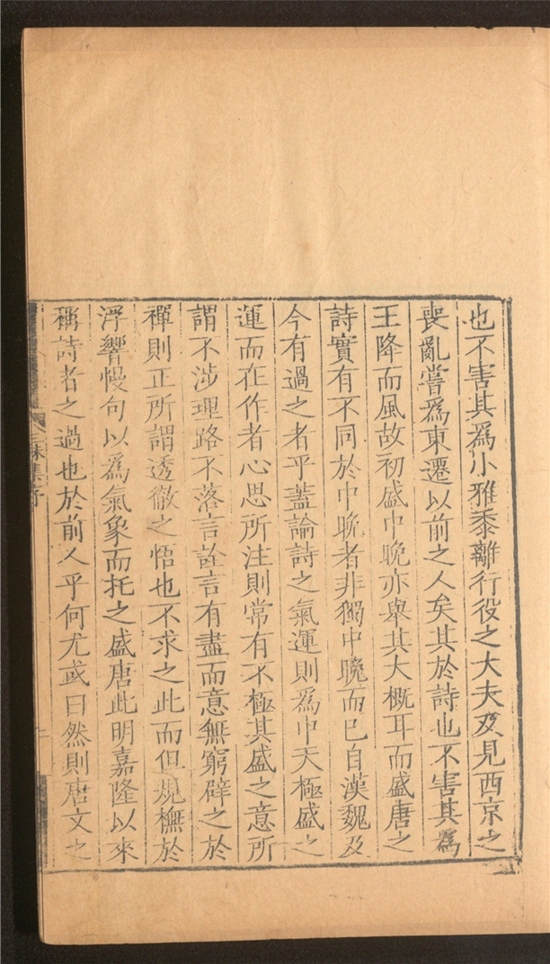 也不害其為小雅黍離行役之大夫及見西京之
喪亂嘗為東遷以前之人矣其於詩也不害其為
王降而風故初盛中晚亦舉其大概耳而盛唐之
詩實有不同於中晚者非獨中晚而已自漢魏及
今有過之者乎蓋論詩之氣運則為中天極盛之
運而在作者心思所注則常有不極其盛之意所
謂不涉理路不落言詮言有盡而意無窮礕之於
禪則正所謂透徹之悟也不求之此而但規橅於
浮響慢句以為氣象而托之盛唐此明嘉隆以來
稱詩者之過也於前人乎何尤或曰然則唐文之
三昧集序